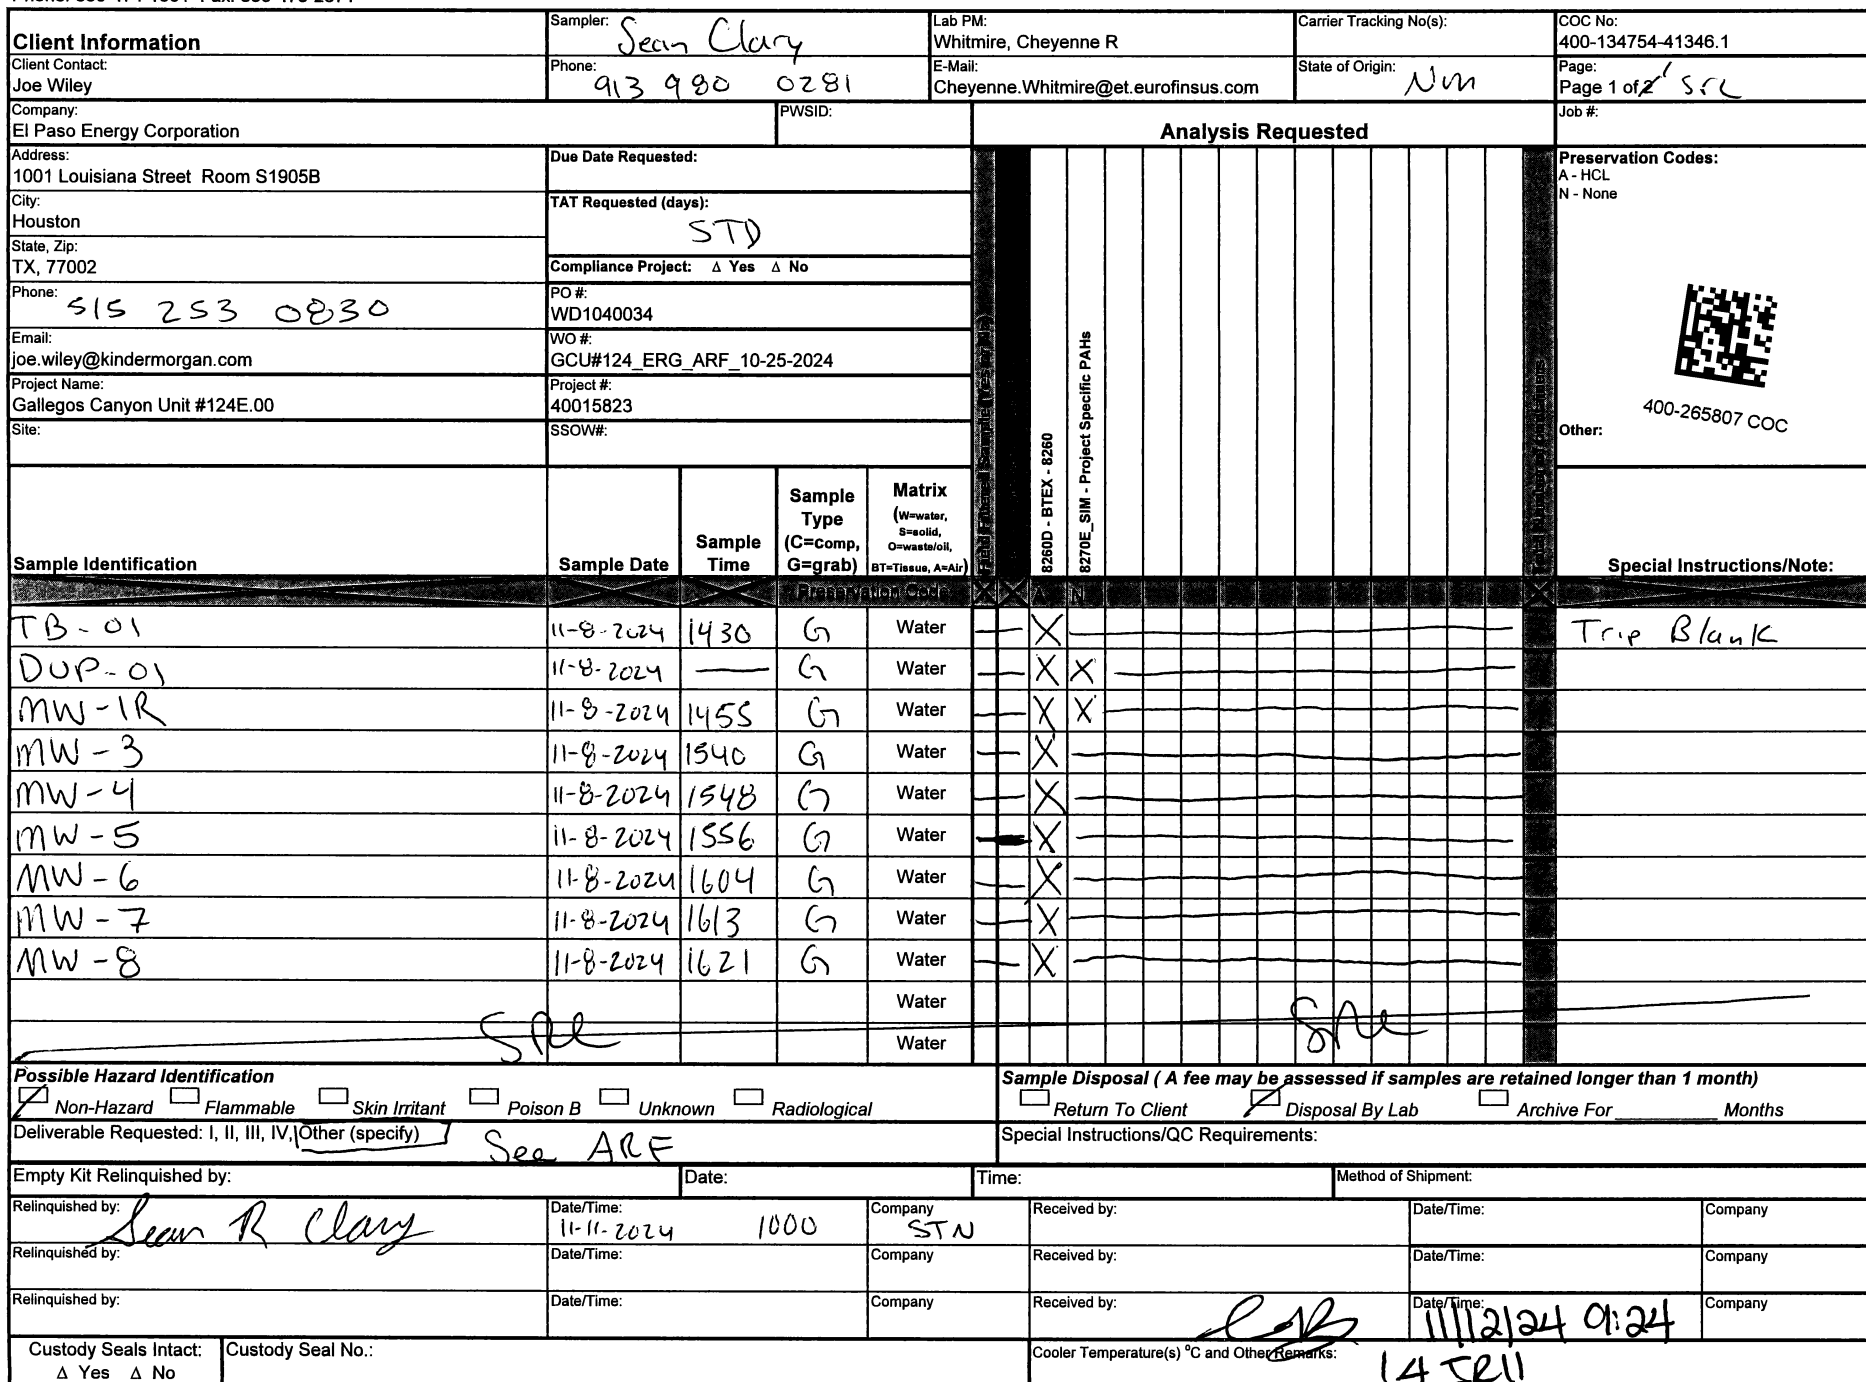 Client Information
Sampler: Sean Clary
Lab PM:
Whitmire, Cheyenne R
Carrier Tracking No(s):
COC No:
400-134754-41346.1
Client Contact:
Joe Wiley
Phone: 913 980 0281
E-Mail:
Cheyenne.Whitmire@et.eurofinsus.com
State of Origin: NM
Page:
Page 1 of 1 SRC
Company:
El Paso Energy Corporation
PWSID:
Analysis Requested
Job #:
Address:
1001 Louisiana Street Room S1905B
Due Date Requested:
City:
Houston
TAT Requested (days):
STD
State, Zip:
TX, 77002
Compliance Project: Δ Yes Δ No
Phone: 515 253 0830
PO #:
WD1040034
Email:
joe.wiley@kindermorgan.com
WO #:
GCU#124_ERG_ARF_10-25-2024
Project Name:
Gallegos Canyon Unit #124E.00
Project #:
40015823
Site:
SSOW#:
8260D - BTEX - 8260
8270E_SIM - Project Specific PAHs
Preservation Codes:
A - HCL
N - None
400-265807 COC
Other:
Sample Identification
Sample Date
Sample Time
Sample Type (C=comp, G=grab)
Matrix (W=water, S=solid, O=waste/oil, BT=Tissue, A=Air)
Special Instructions/Note:
Preservation Code X X A N X
TB-01 11-8-2024 1430 G Water X Trip Blank
DUP-01 11-8-2024 — G Water X X
MW-1R 11-8-2024 1455 G Water X X
MW-3 11-8-2024 1540 G Water X
MW-4 11-8-2024 1548 G Water X
MW-5 11-8-2024 1556 G Water X
MW-6 11-8-2024 1604 G Water X
MW-7 11-8-2024 1613 G Water X
MW-8 11-8-2024 1621 G Water X
Water
SRC Water SRC
Possible Hazard Identification
Non-Hazard Flammable Skin Irritant Poison B Unknown Radiological
Sample Disposal ( A fee may be assessed if samples are retained longer than 1 month)
Return To Client Disposal By Lab Archive For ________ Months
Deliverable Requested: I, II, III, IV, Other (specify) See ARF
Special Instructions/QC Requirements:
Empty Kit Relinquished by:
Date:
Time:
Method of Shipment:
Relinquished by: Sean R Clary
Date/Time: 11-11-2024 1000
Company STN
Received by:
Date/Time:
Company
Relinquished by:
Date/Time:
Company
Received by:
Date/Time:
Company
Relinquished by:
Date/Time:
Company
Received by:
Date/Time: 11/12/24 9:24
Company
Custody Seals Intact:
Δ Yes Δ No
Custody Seal No.:
Cooler Temperature(s) °C and Other Remarks: